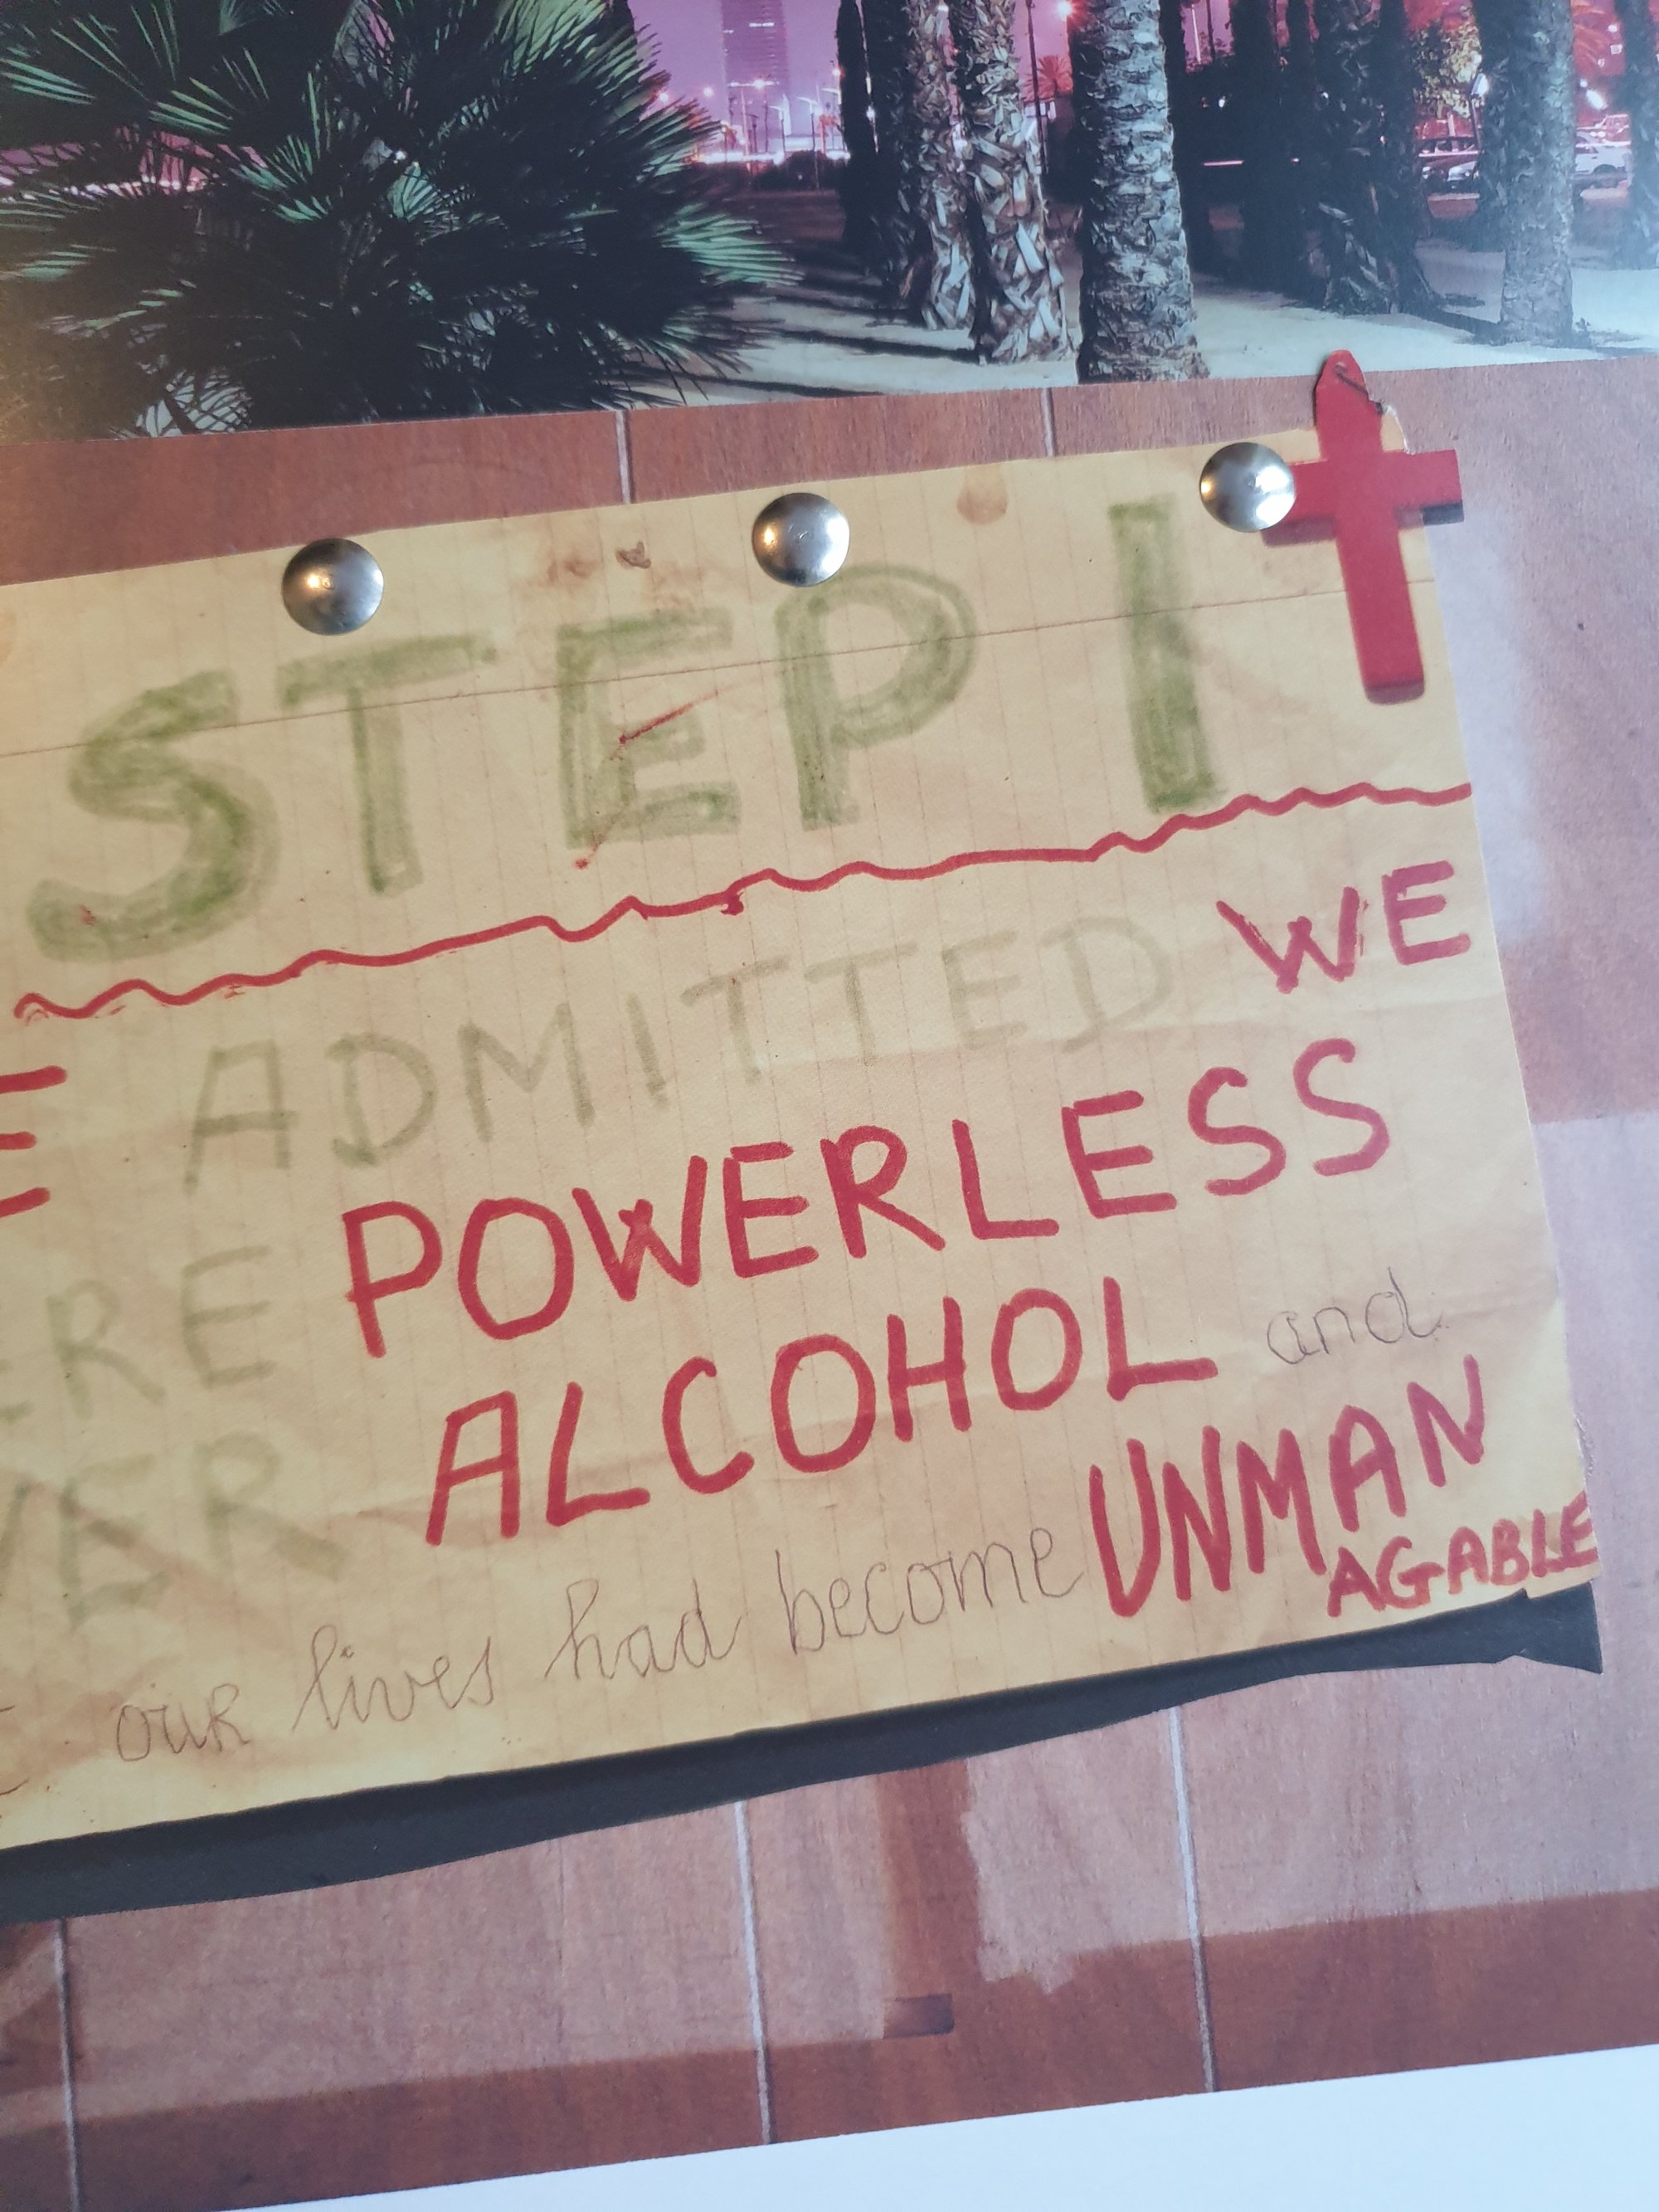 STEP 1
E ADMITTED WE
ERE POWERLESS
VER ALCOHOL and
our lives had become UNMAN
AGABLE